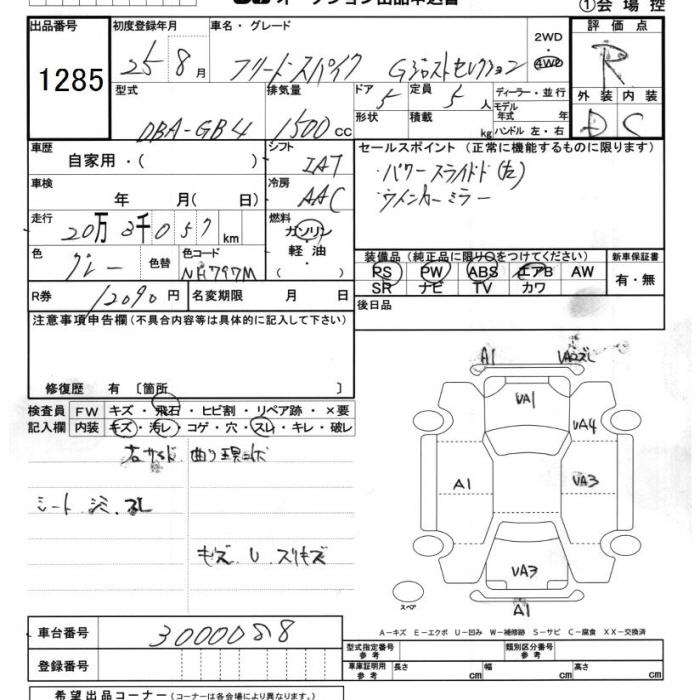 オークション出品申込書 ①会場控
出品番号 初度登録年月 車名・グレード 2WD 評価点
1285 25 8月 フリードスパイク Gジャストセレクション 4WD R
型式 排気量 ドア 定員 ディーラー・並行 外装 内装
DBA-GB4 1500cc 5 5人 モデル年式 年 D C
形状 積載 kg ハンドル 左・右
車歴 シフト セールスポイント(正常に機能するものに限ります)
自家用・( ) IAT ・パワースライドドア(左)
車検 冷房 ウインカーミラー
年 月( 日) AAC
走行 燃料
20万3千057km ガソリン
色 色替 色コード 軽油 装備品(純正品に限り○をつけてください) 新車保証書
グレー NH797M ( ) PS PW ABS エアB AW 有・無
SR ナビ TV カワ
R券 12090円 名変期限 月 日 後日品
注意事項申告欄(不具合内容等は具体的に記入して下さい)
修復歴 有〔箇所 〕
検査員 FW キズ・飛石・ヒビ割・リペア跡・×要
記入欄 内装 キズ・汚レ・コゲ・穴・スレ・キレ・破レ
シート
キズ U スリキズ
A1
UA1
UA4
A1
UA3
UA3
A1
スペア
A-キズ E-エクボ U-凹み W-補修跡 S-サビ C-腐食 XX-交換済
車台番号 3000088
登録番号
型式指定番号 参考 類別区分番号 参考
車庫証明用 参考 長さ cm 幅 cm 高さ cm
希望出品コーナー(コーナーは各会場により異なります。)